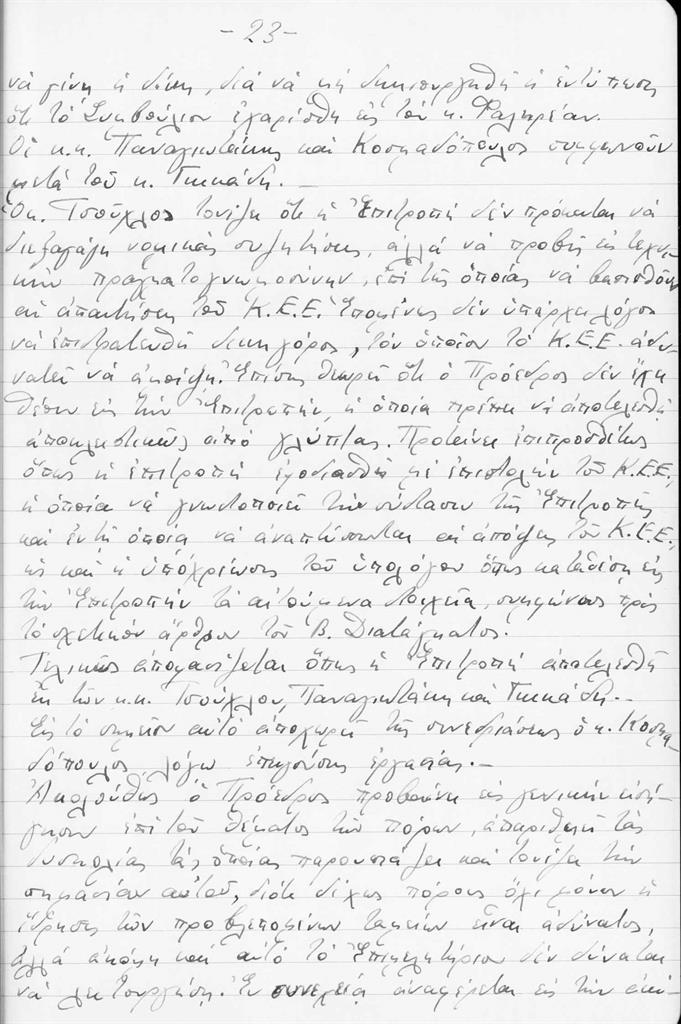 -23-
νὰ γίνῃ ἡ δίκη, διὰ νὰ μὴ δημιουργηθῇ ἡ ἐντύπωσις
ὅτι τὸ Συμβούλιον ἐχαρίσθη εἰς τὸν κ. Φαληρέαν.
Οἱ κ.κ. Παναγιωτάκης καὶ Κοσμαδόπουλος συμφωνοῦν
μετὰ τοῦ κ. Γκικάδη.-
Ὁ κ. Τσούχλος τονίζει ὅτι ἡ Ἐπιτροπὴ δὲν πρόκειται νὰ
διεξαγάγῃ νομικὰς συζητήσεις, ἀλλὰ νὰ προβῇ εἰς τεχνι-
κὴν πραγματογνωμοσύνην, ἐπὶ τῆς ὁποίας νὰ βασισθοῦν
αἱ ἀπαιτήσεις τοῦ Κ.Ε.Ε. Ἑπομένως δὲν ὑπάρχει λόγος
νὰ ἐπιστρατευθῇ δικηγόρος, τὸν ὁποῖον τὸ Κ.Ε.Ε. ἀδυ-
νατεῖ νὰ ἀμοίψῃ. Ἐπίσης θεωρεῖ ὅτι ὁ Πρόεδρος δὲν ἔχει
θέσιν εἰς τὴν Ἐπιτροπήν, ἡ ὁποία πρέπει νὰ ἀποτελεσθῇ
ἀποκλειστικῶς ἀπὸ γλύπτας. Προτείνει ἐπιπροσθέτως
ὅπως ἡ ἐπιτροπὴ ἐφοδιασθῇ μὲ ἐπιστολὴν τοῦ Κ.Ε.Ε.,
ἡ ὁποία νὰ γνωστοποιεῖ τὴν σύστασιν τῆς Ἐπιτροπῆς
καὶ ἐν τῇ ὁποίᾳ νὰ ἀναπτύσσωνται αἱ ἀπόψεις τοῦ Κ.Ε.Ε.,
ὡς καὶ ἡ ὑποχρέωσις τοῦ ὑπολόγου ὅπως καταθέσῃ εἰς
τὴν Ἐπιτροπὴν τὰ αἰτούμενα στοιχεῖα, συμφώνως πρὸς
τὸ σχετικὸν ἄρθρον τοῦ Β. Διατάγματος.
Τελικῶς ἀποφασίζεται ὅπως ἡ Ἐπιτροπὴ ἀποτελεσθῇ
ἐκ τῶν κ.κ. Τσούχλου, Παναγιωτάκη καὶ Γκικάδη.-
Εἰς τὸ σημεῖον αὐτὸ ἀποχωρεῖ τῆς συνεδριάσεως ὁ κ. Κοσμα-
δόπουλος λόγῳ ἐπειγούσης ἐργασίας.-
Ἀκολούθως ὁ Πρόεδρος προβαίνει εἰς γενικὴν εἰσή-
γησιν ἐπὶ τοῦ θέματος τῶν πόρων, ἀπαριθμεῖ τὰς
δυσκολίας τὰς ὁποίας παρουσιάζει καὶ τονίζει τὴν
σημασίαν αὐτοῦ, διότι δίχως πόρους ὄχι μόνον ἡ
ἵδρυσις τῶν προβλεπομένων ταμείων εἶναι ἀδύνατος,
ἀλλὰ ἀκόμη καὶ αὐτὸ τὸ Ἐπιμελητήριον δὲν δύναται
νὰ λειτουργήσῃ. Ἐν συνεχείᾳ ἀναφέρεται εἰς τὴν